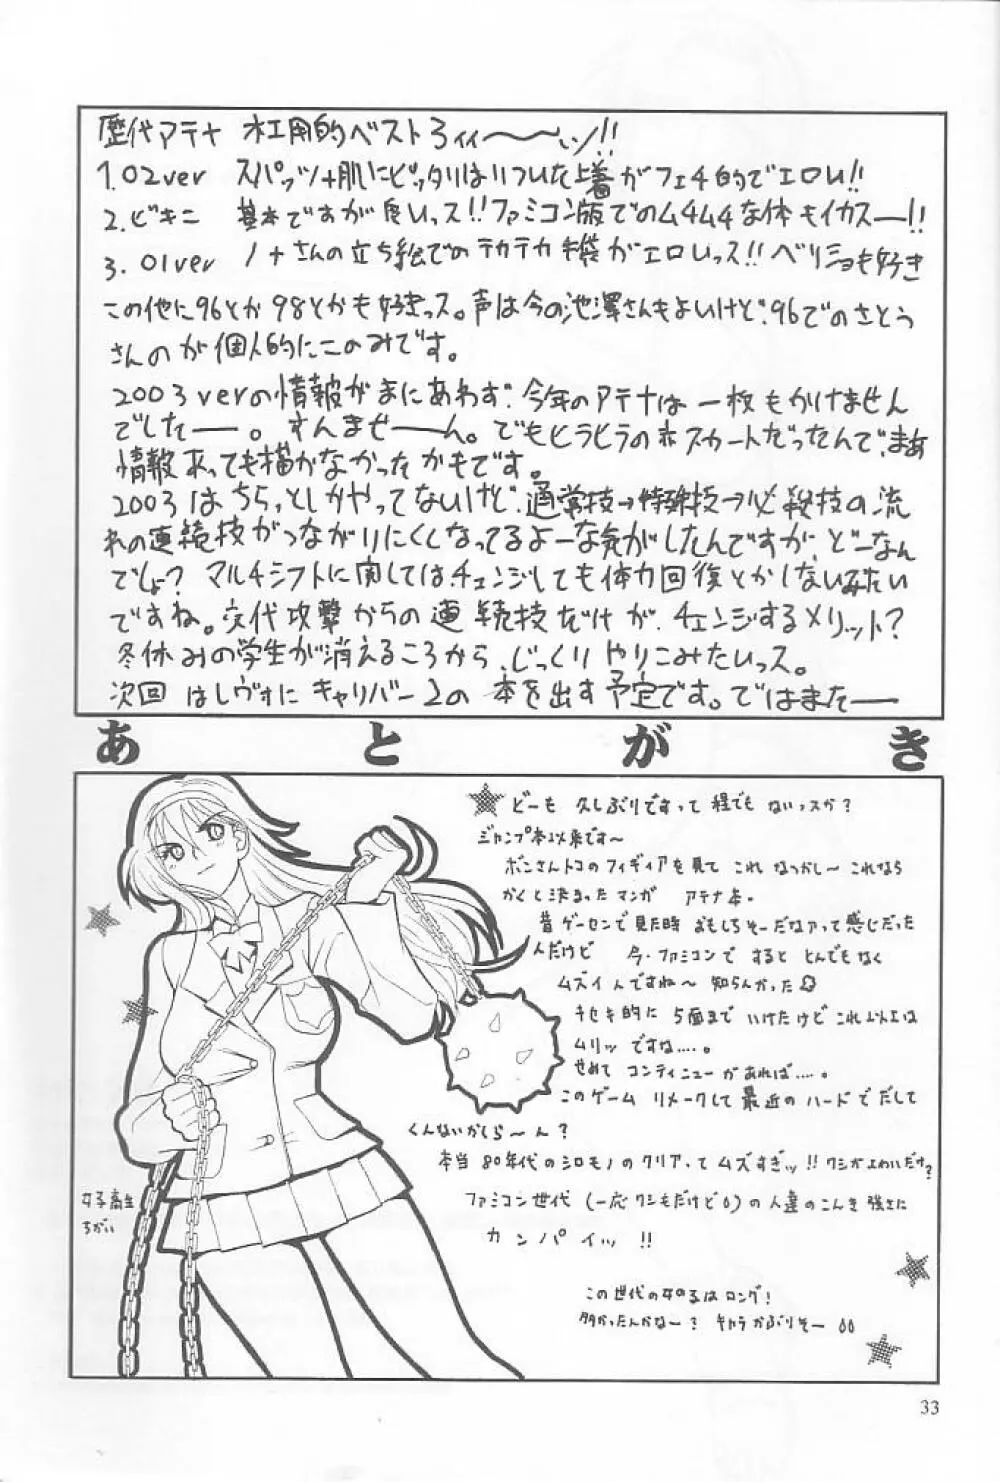 歴代アテナ ホエ用的ベスト3ィィ〜〜〜ッ!!
1. 02ver スパッツ+肌にピッタリはりついた上着がフェチ的でエロい!!
2. ビキニ 基本ですが良いっス!!ファミコン版でのムチムチな体もイカスーー!!
3. 01ver ノナさんの立ち絵でのテカテカ手袋がエロいっス!! ベリショも好き
この他に96とか98とかも好きっス。声は今の池澤さんもよいけど、96でのさとう
さんのが個人的にこのみです。
2003verの情報がまにあわず、今年のアテナは一枚もかけません
でしたーー。すんませーーん。でもヒラヒラの赤スカートだったんで、まあ
情報あっても描かなかったかもです。
2003はちらっとしかやってないけど、通常技→特殊技→必殺技の流
れの連続技がつながりにくくなってるよーな気がしたんですが、どーなん
でしょ? マルチシフトに関してはチェンジしても体力回復とかしないみたい
ですね。交代攻撃からの連続技だけが、チェンジするメリット?
冬休みの学生が消えるころから、じっくりやりこみたいっス。
次回はレヴォにキャリバー2の本を出す予定です。ではまたーー
あとがき
どーも 久しぶりですって程でもないっスか?
ジャンプ本以来です〜
ボンさんトコのフィギィアを見て これ なつかし〜 これなら
かくと決まったマンガ アテナ本。
昔ゲーセンで見た時 おもしろそーだなァって感じだった
んだけど 今・ファミコンですると とんでもなく
ムズイんですね〜 知らんかった
キセキ的に 5面まで いけたけど これ以上は
ムリッ ですね……。
せめて コンティニューがあれば……。
このゲーム リメークして最近のハードでだして
くんないかしら〜ん?
本当 80年代のシロモノのクリアってムズすぎッ!!ワシがよわいだけ?
ファミコン世代(一応ワシもだけど)の人達のこんき強さに
カンパイッ!!
女子高生
ちがい
この世代の女のコはロング!
多かったんかなー? キャラかぶりそー
33